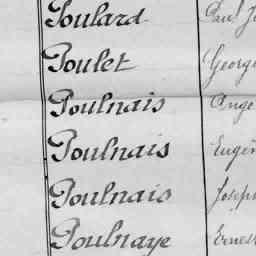 Poulard Paul J
Poulet Georg
Poulnais Ange
Poulnais Eugèn
Poulnais Joseph
Poulnaye Ernest